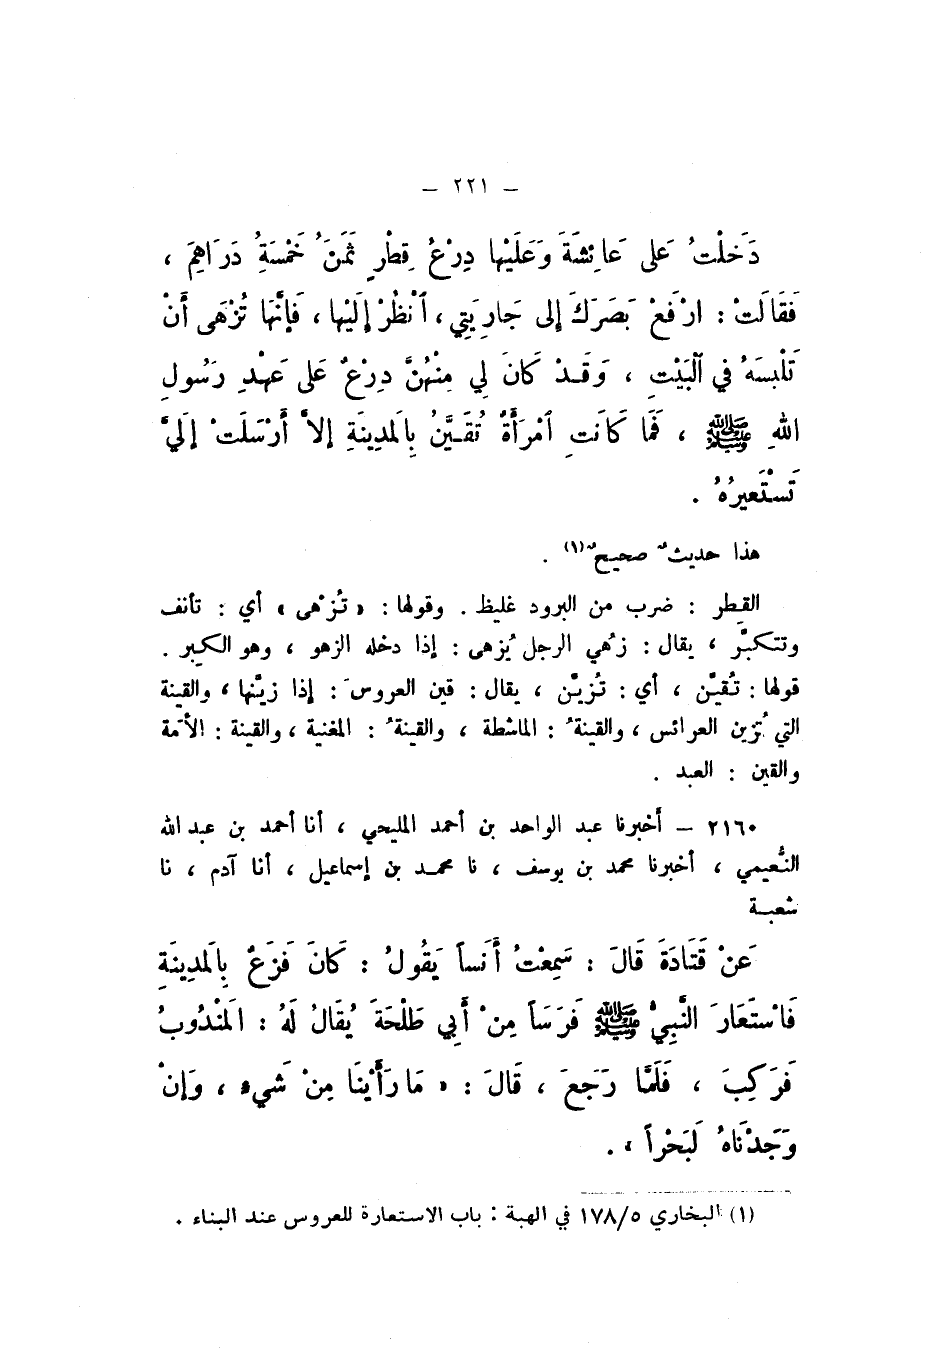 – ٢٢١ –
دَخَلْتُ عَلى عَائِشَةَ وَعَلَيْها دِرْعُ قِطْرٍ ثَمَنُ خَمْسَةُ دَرَاهِمَ ،
فَقَالَتْ : ارْفَعْ بَصَرَكَ إلى جَارِيَتِي، ٱنْظُرْ إلَيْها ، فَإنَّهَا تُزْهَى أَنْ
تَلْبَسَهُ في ٱلْبَيْتِ ، وَقَدْ كَانَ لِي مِنْهُنَّ دِرْعٌ عَلى عَهْدِ رَسُولِ
اللهِ ﷺ ، فَمَا كَانَتِ ٱمْرَأَةٌ تُقَيَّنُ بِالمَدِينَةِ إلاَّ أَرْسَلَتْ إلَيَّ
تَسْتَعِيرُهُ .
هذا حديثٌ صحيحٌ (١) .
القِطر : ضرب من البرود غليظ . وقولها : « تُزْهى » أي : تأنف
وتتكبَّر ، يقال : زُهي الرجل يُزهى : إذا دخله الزهو ، وهو الكِبر .
قولها : تُقيَّن ، أي : تُزيَّن ، يقال : قين العروسَ : إذا زيَّنها ، والقينة
التي تُزين العرائس ، والقينةُ : الماشطة ، والقينةُ : المغنية ، والقينة : الأمة
والقين : العبد .
٢١٦٠ – أخبرنا عبد الواحد بن أحمد المليحي ، أنا أحمد بن عبد الله
النُّعيمي ، أخبرنا محمد بن يوسف ، نا محمد بن إسماعيل ، أنا آدم ، نا
شعبة
عَنْ قَتَادَةَ قَالَ : سَمِعْتُ أَنَساً يَقُولُ : كَانَ فَزَعٌ بِالمَدِينَةِ
فَاسْتَعَارَ النَّبِيُّ ﷺ فَرَسَاً مِنْ أَبِي طَلْحَةَ يُقَالُ لَهُ : المَنْدُوبُ
فَرَكِبَ ، فَلَمَّا رَجَعَ ، قَالَ : « مَا رَأَيْنَا مِنْ شَيءٍ ، وَإنْ
وَجَدْنَاهُ لَبَحْراً » .
(١) البخاري ١٧٨/٥ في الهبة : باب الاستعارة للعروس عند البناء .